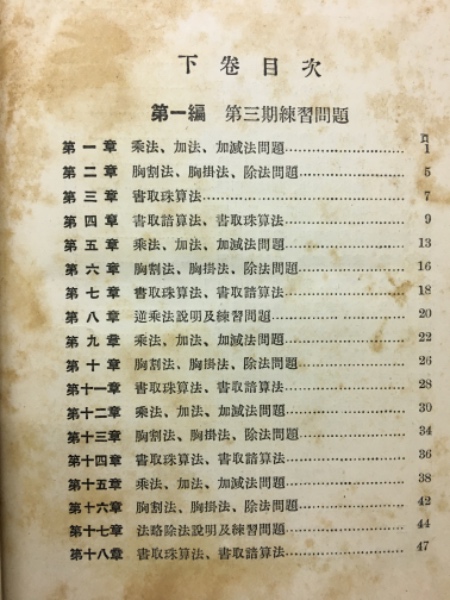 下卷目次
第一編 第三期練習問題
頁
第一章 乘法、加法、加減法問題 1
第二章 胸割法、胸掛法、除法問題 5
第三章 書取珠算法 7
第四章 書取諳算法、書取珠算法 9
第五章 乘法、加法、加減法問題 13
第六章 胸割法、胸掛法、除法問題 16
第七章 書取珠算法、書取諳算法 18
第八章 逆乘法說明及練習問題 20
第九章 乘法、加法、加減法問題 22
第十章 胸割法、胸掛法、除法問題 26
第十一章 書取珠算法、書取諳算法 28
第十二章 乘法、加法、加減法問題 30
第十三章 胸割法、胸掛法、除法問題 34
第十四章 書取珠算法、書取諳算法 36
第十五章 乘法、加法、加減法問題 38
第十六章 胸割法、胸掛法、除法問題 42
第十七章 法略除法說明及練習問題 44
第十八章 書取珠算法、書取諳算法 47